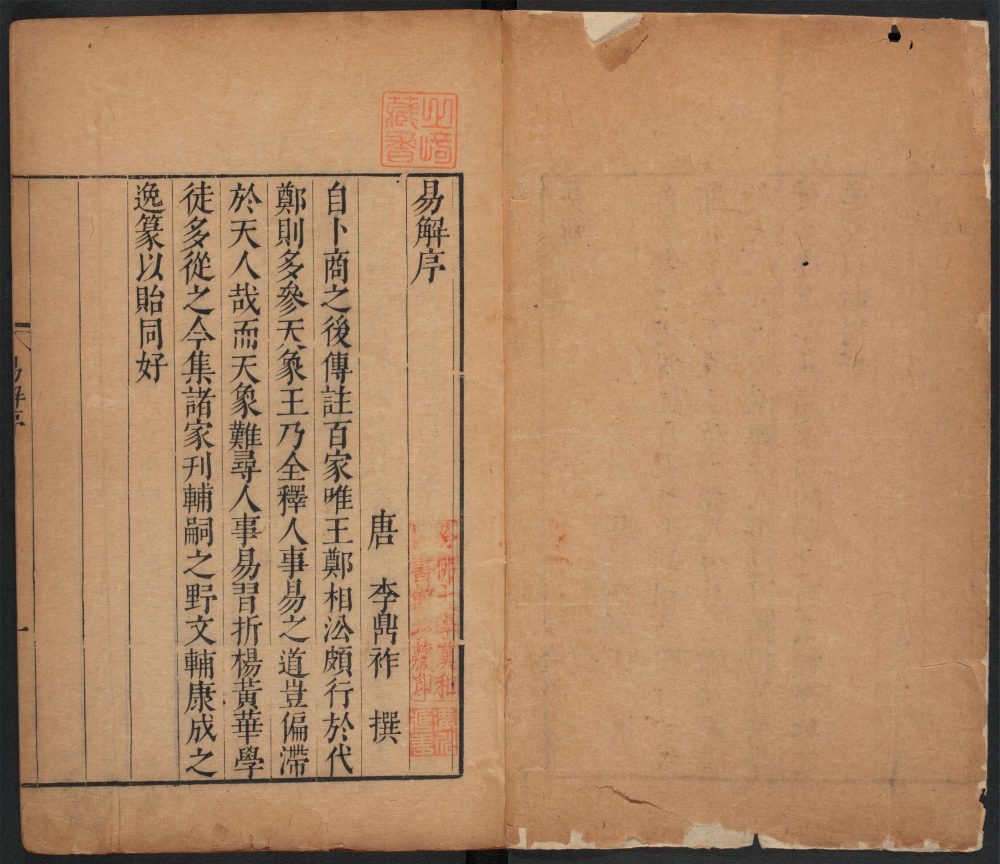 易解序
唐 李鼎祚 撰
自卜商之後傳註百家唯王鄭相沿頗行於代
鄭則多參天象王乃全釋人事易之道豈偏滯
於天人哉而天象難尋人事易習折楊黃華學
徒多從之今集諸家刊輔嗣之野文輔康成之
逸篆以貽同好
易解序
一